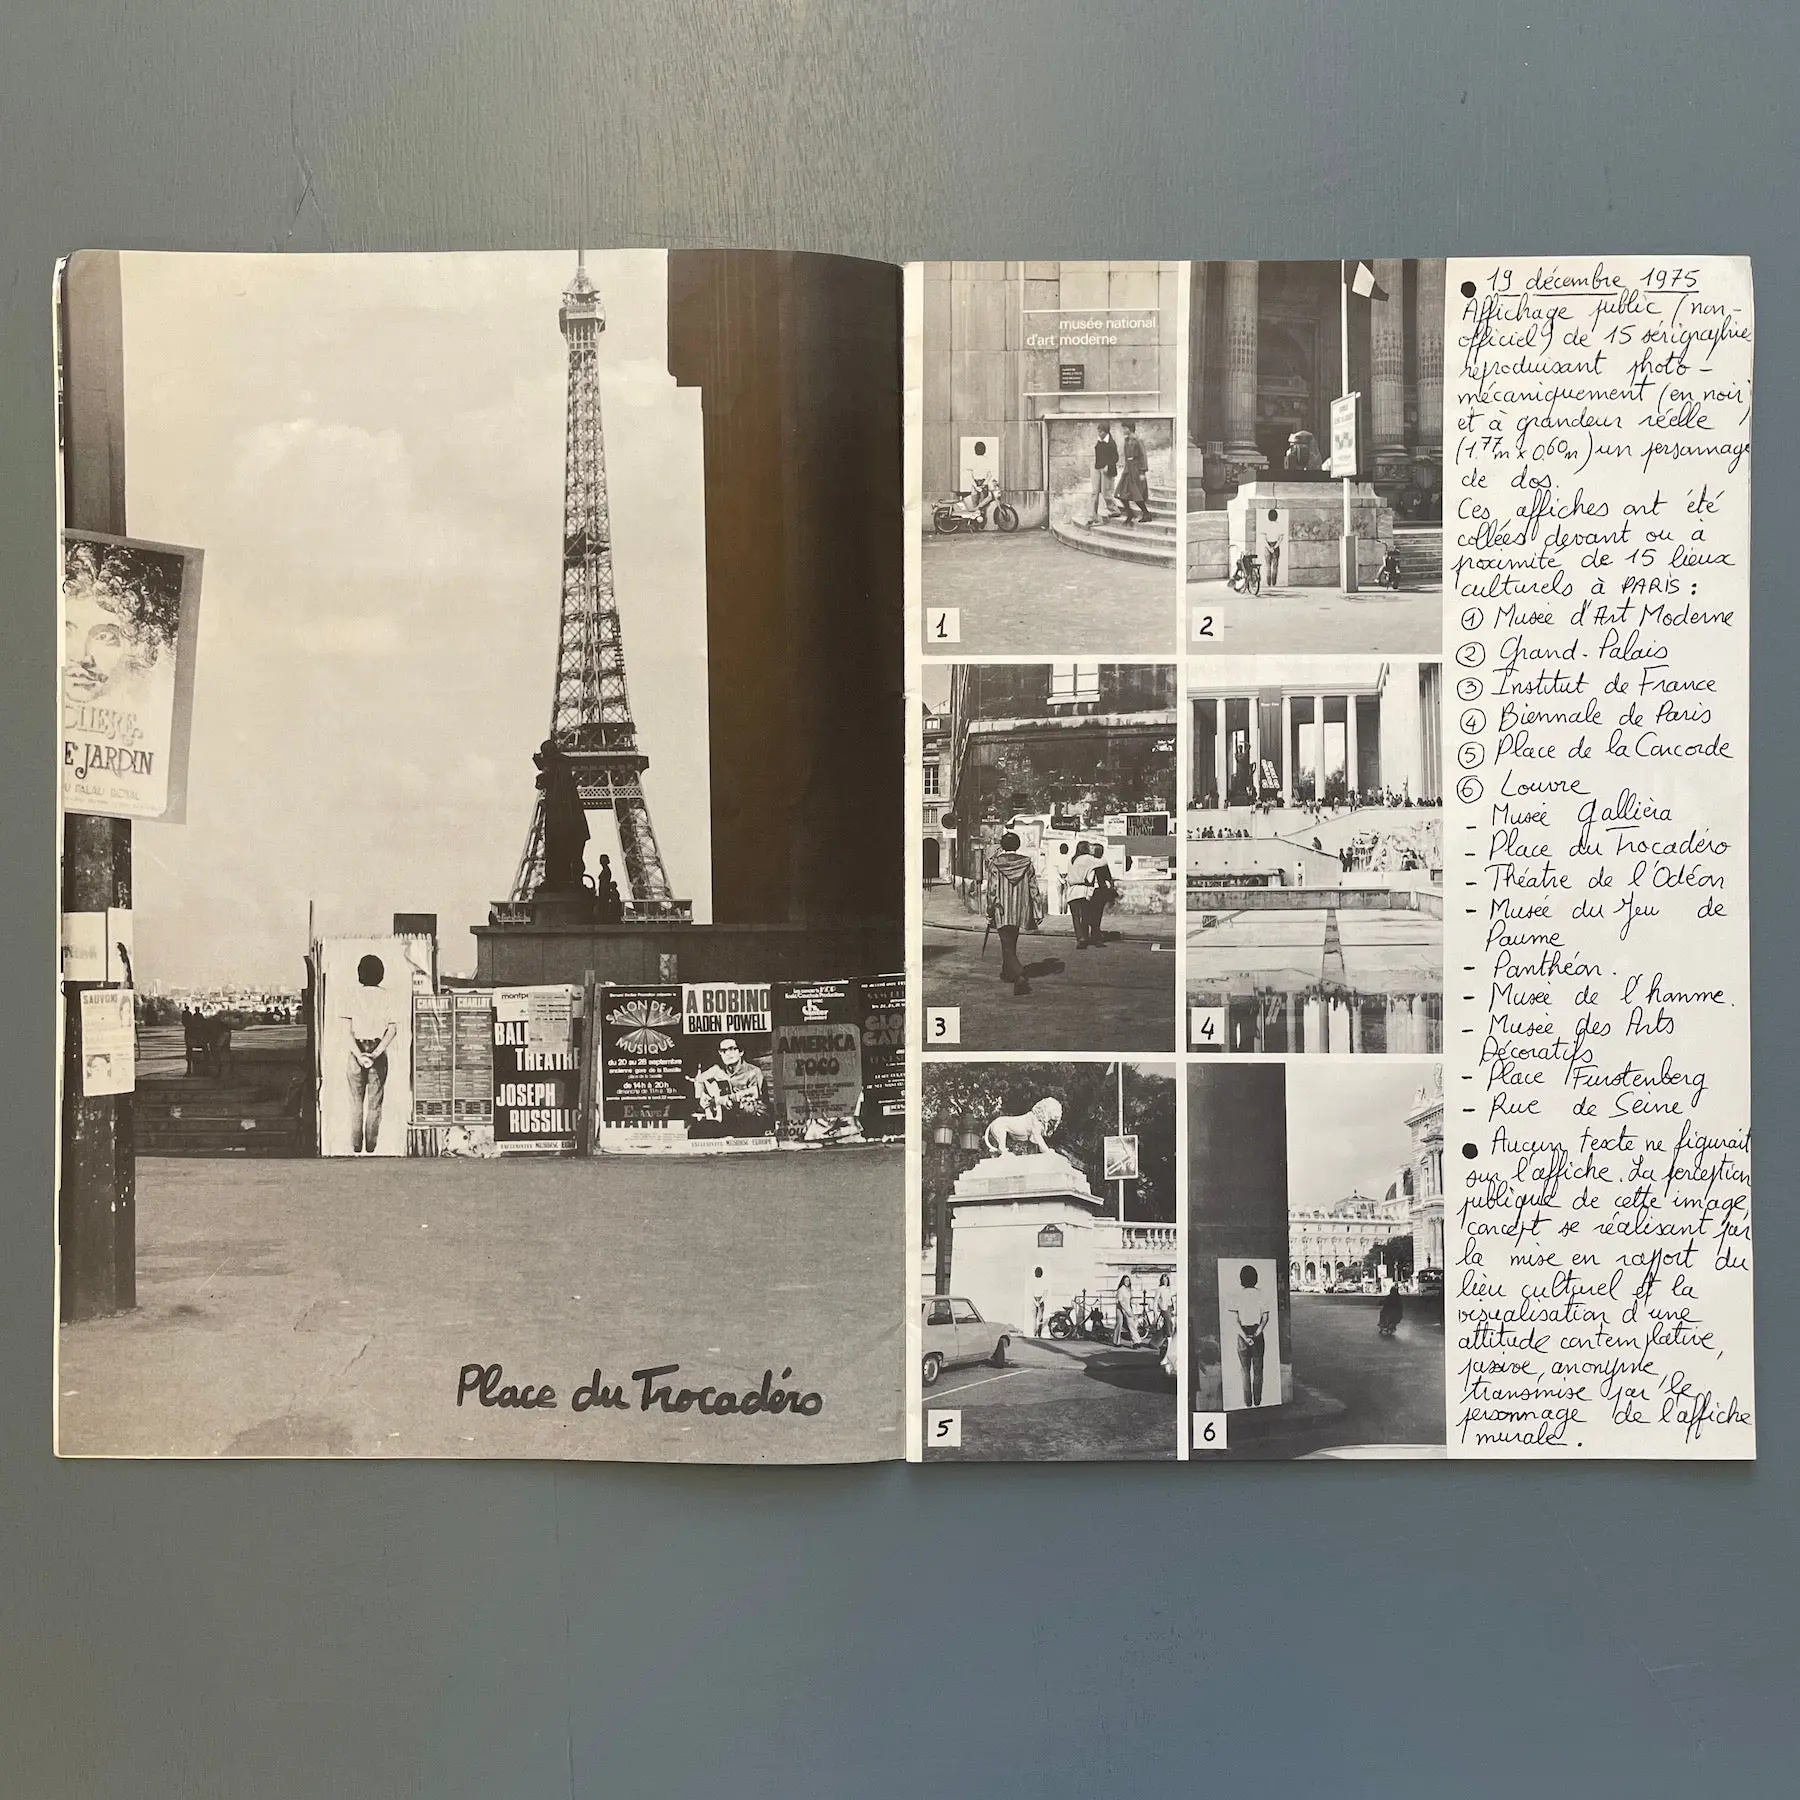 DLIERE
E JARDIN
U PALAU ROYAL
SAUVONS
CHAILLOT
CHAILLOT
montp
BALL
THEATRE
JOSEPH
RUSSILLO
SALON DE LA
MUSIQUE
du 20 au 28 septembre
ancienne gare de la Bastille
place de la bastille
de 14h à 20h
A BOBINO
BADEN POWELL
AMERICA
POCO
Place du Trocadéro
musée national
d'art moderne
1
2
3
4
5
6
● 19 décembre 1975
Affichage public (non-
officiel) de 15 sérigraphie
reproduisant photo-
mécaniquement (en noir
et à grandeur réelle
(1.77m x 0.60m) un personnage
de dos.
Ces affiches ont été
collées devant ou à
proximité de 15 lieux
culturels à PARIS :
① Musée d'Art Moderne
② Grand-Palais
③ Institut de France
④ Biennale de Paris
⑤ Place de la Concorde
⑥ Louvre
- Musée Gallièra
- Place du Trocadéro
- Théatre de l'Odéon
- Musée du Jeu de
Paume
- Panthéon.
- Musée de l'homme.
- Musée des Arts
Décoratifs
- Place Furstenberg
- Rue de Seine
● Aucun texte ne figurait
sur l'affiche. La perception
publique de cette image,
concept se réalisant par
la mise en rapport du
lieu culturel et la
visualisation d'une
attitude contemplative,
passive, anonyme,
transmise par le
personnage de l'affiche
murale.